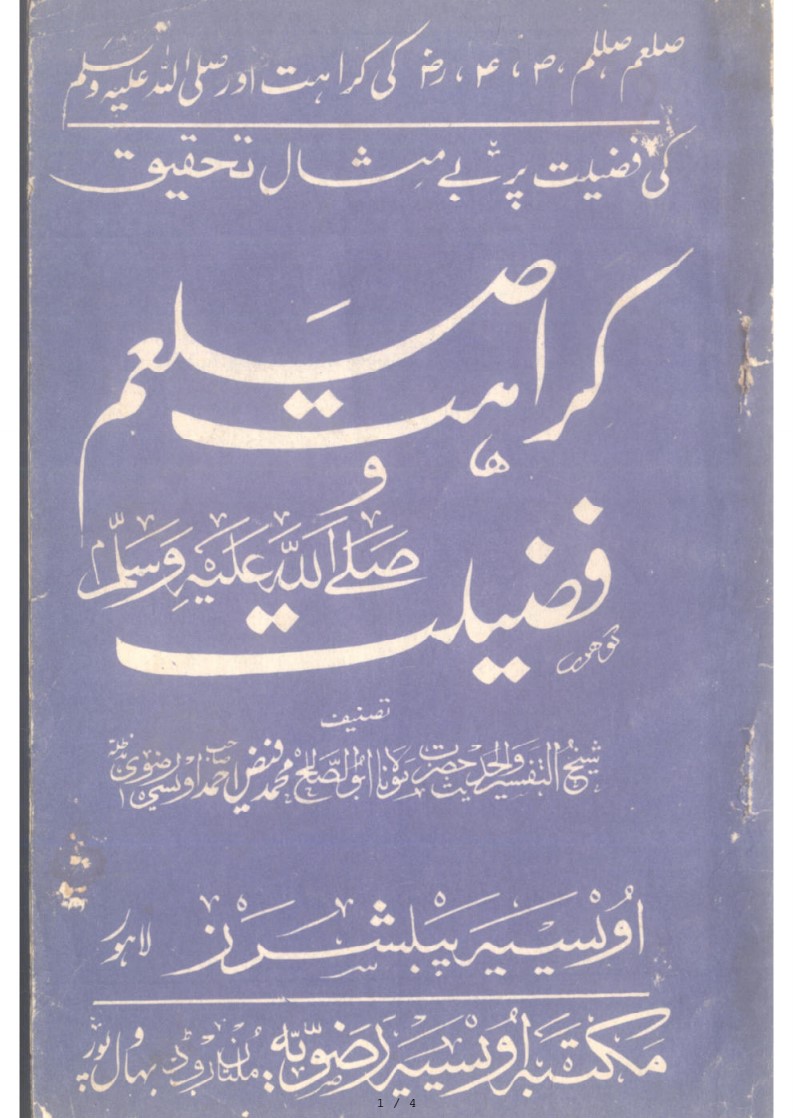 صلعم صللم، ص، ۴، رض کی کراہت اور صلی اللہ علیہ وسلم
کی فضیلت پر بے مثال تحقیق
کراہت صلعم
و
فضیلت صَلَے اللہ عَلَیْہِ وَسَلَّم
تصنیف
شیخ التفسیر والحدیث حضرت مولانا ابوالصالح محمد فیض احمد صاحب اویسی رضوی
اویسیہ پبلشرز لاہور
مکتبہ اویسیہ رضویہ؛ ملتان روڈ بہاولپور
1 / 4